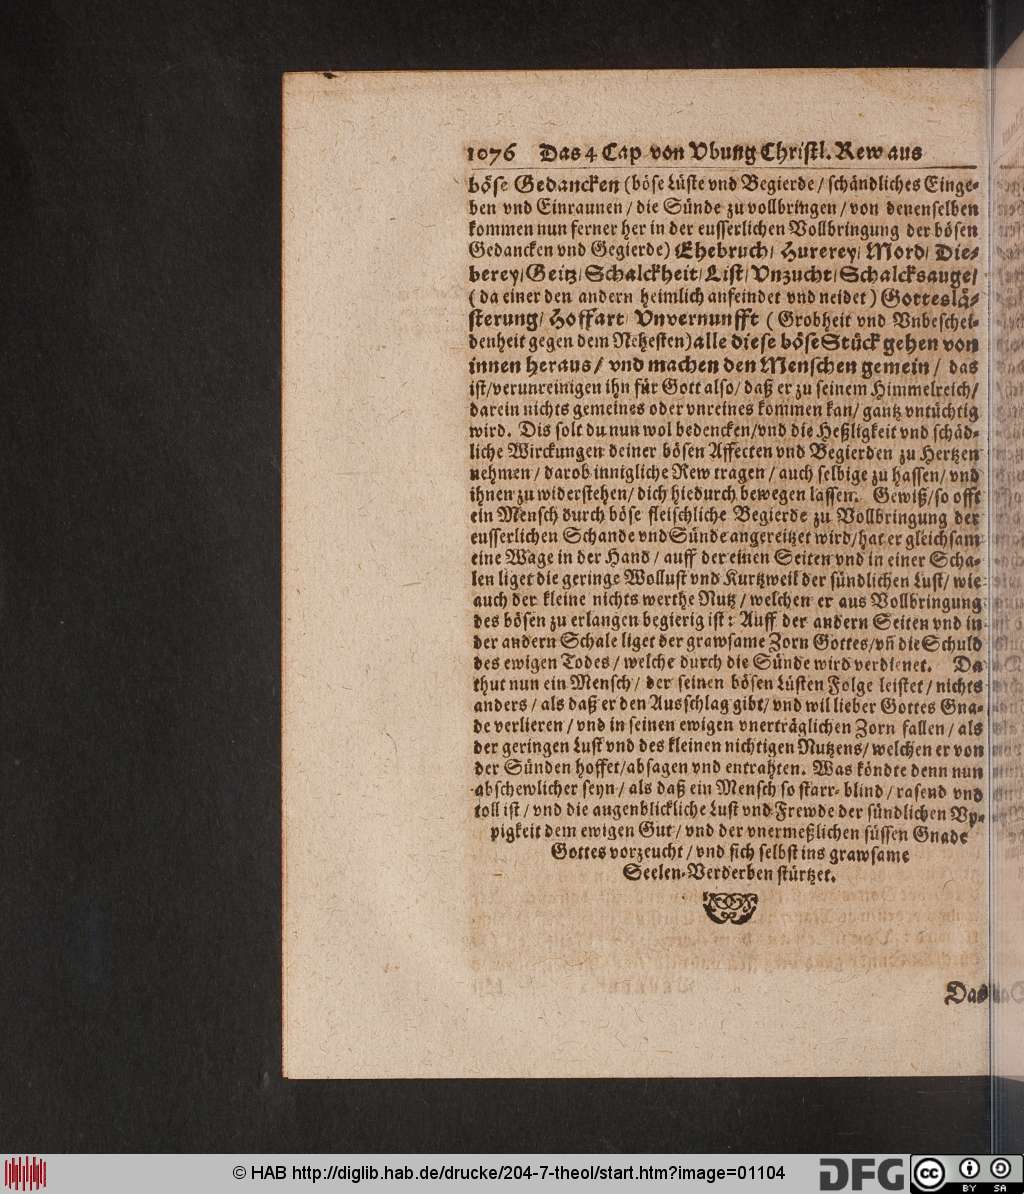 1076 Das 4 Cap von Vbung Christl. Rew aus
böse Gedancken (böse Lüste vnd Begierde / schändliches Einge-
ben vnd Einraunen / die Sünde zu vollbringen / von denenselben
kommen nun ferner her in der eusserlichen Vollbringung der bösen
Gedancken vnd Gegierde) Ehebruch / Hurerey / Mord / Die-
berey / Geitz / Schalckheit / List / Vnzucht / Schalcksauge /
( da einer den andern heimlich anfeindet vnd neidet ) Gotteslä-
sterung / Hoffart / Vnvernunfft ( Grobheit vnd Vnbeschei-
denheit gegen dem Nehesten) alle diese böse Stück gehen von
innen heraus / vnd machen den Menschen gemein / das
ist / verunreinigen ihn für Gott also / daß er zu seinem Himmelreich /
darein nichts gemeines oder vnreines kommen kan / gantz vntüchtig
wird. Dis solt du nun wol bedencken / vnd die Heßligkeit vnd schäd-
liche Wirckungen deiner bösen Affecten vnd Begierden zu Hertzen
nehmen / darob innigliche Rew tragen / auch selbige zu hassen / vnd
ihnen zu widerstehen / dich hiedurch bewegen lassen. Gewiß / so offt
ein Mensch durch böse fleischliche Begierde zu Vollbringung der
eusserlichen Schande vnd Sünde angereitzet wird / hat er gleichsam
eine Wage in der Hand / auff der einen Seiten vnd in einer Scha-
len liget die geringe Wollust vnd Kurtzweil der sündlichen Lust / wie
auch der kleine nichts werthe Nutz / welchen er aus Vollbringung
des bösen zu erlangen begierig ist : Auff der andern Seiten vnd in
der andern Schale liget der grawsame Zorn Gottes / vñ die Schuld
des ewigen Todes / welche durch die Sünde wird verdienet. Da
thut nun ein Mensch / der seinen bösen Lüsten Folge leistet / nichts
anders / als daß er den Ausschlag gibt / vnd wil lieber Gottes Gna-
de verlieren / vnd in seinen ewigen vnerträglichen Zorn fallen / als
der geringen Lust vnd des kleinen nichtigen Nutzens / welchen er von
der Sünden hoffet / absagen vnd entrahten. Was köndte denn nun
abschewlicher seyn / als daß ein Mensch so starr-blind / rasend vnd
toll ist / vnd die augenblickliche Lust vnd Frewde der sündlichen Vp-
pigkeit dem ewigen Gut / vnd der vnermeßlichen süssen Gnade
Gottes vorzeucht / vnd sich selbst ins grawsame
Seelen-Verderben stürtzet.
Das
© HAB http://diglib.hab.de/drucke/204-7-theol/start.htm?image=01104
DFG
cc BY SA